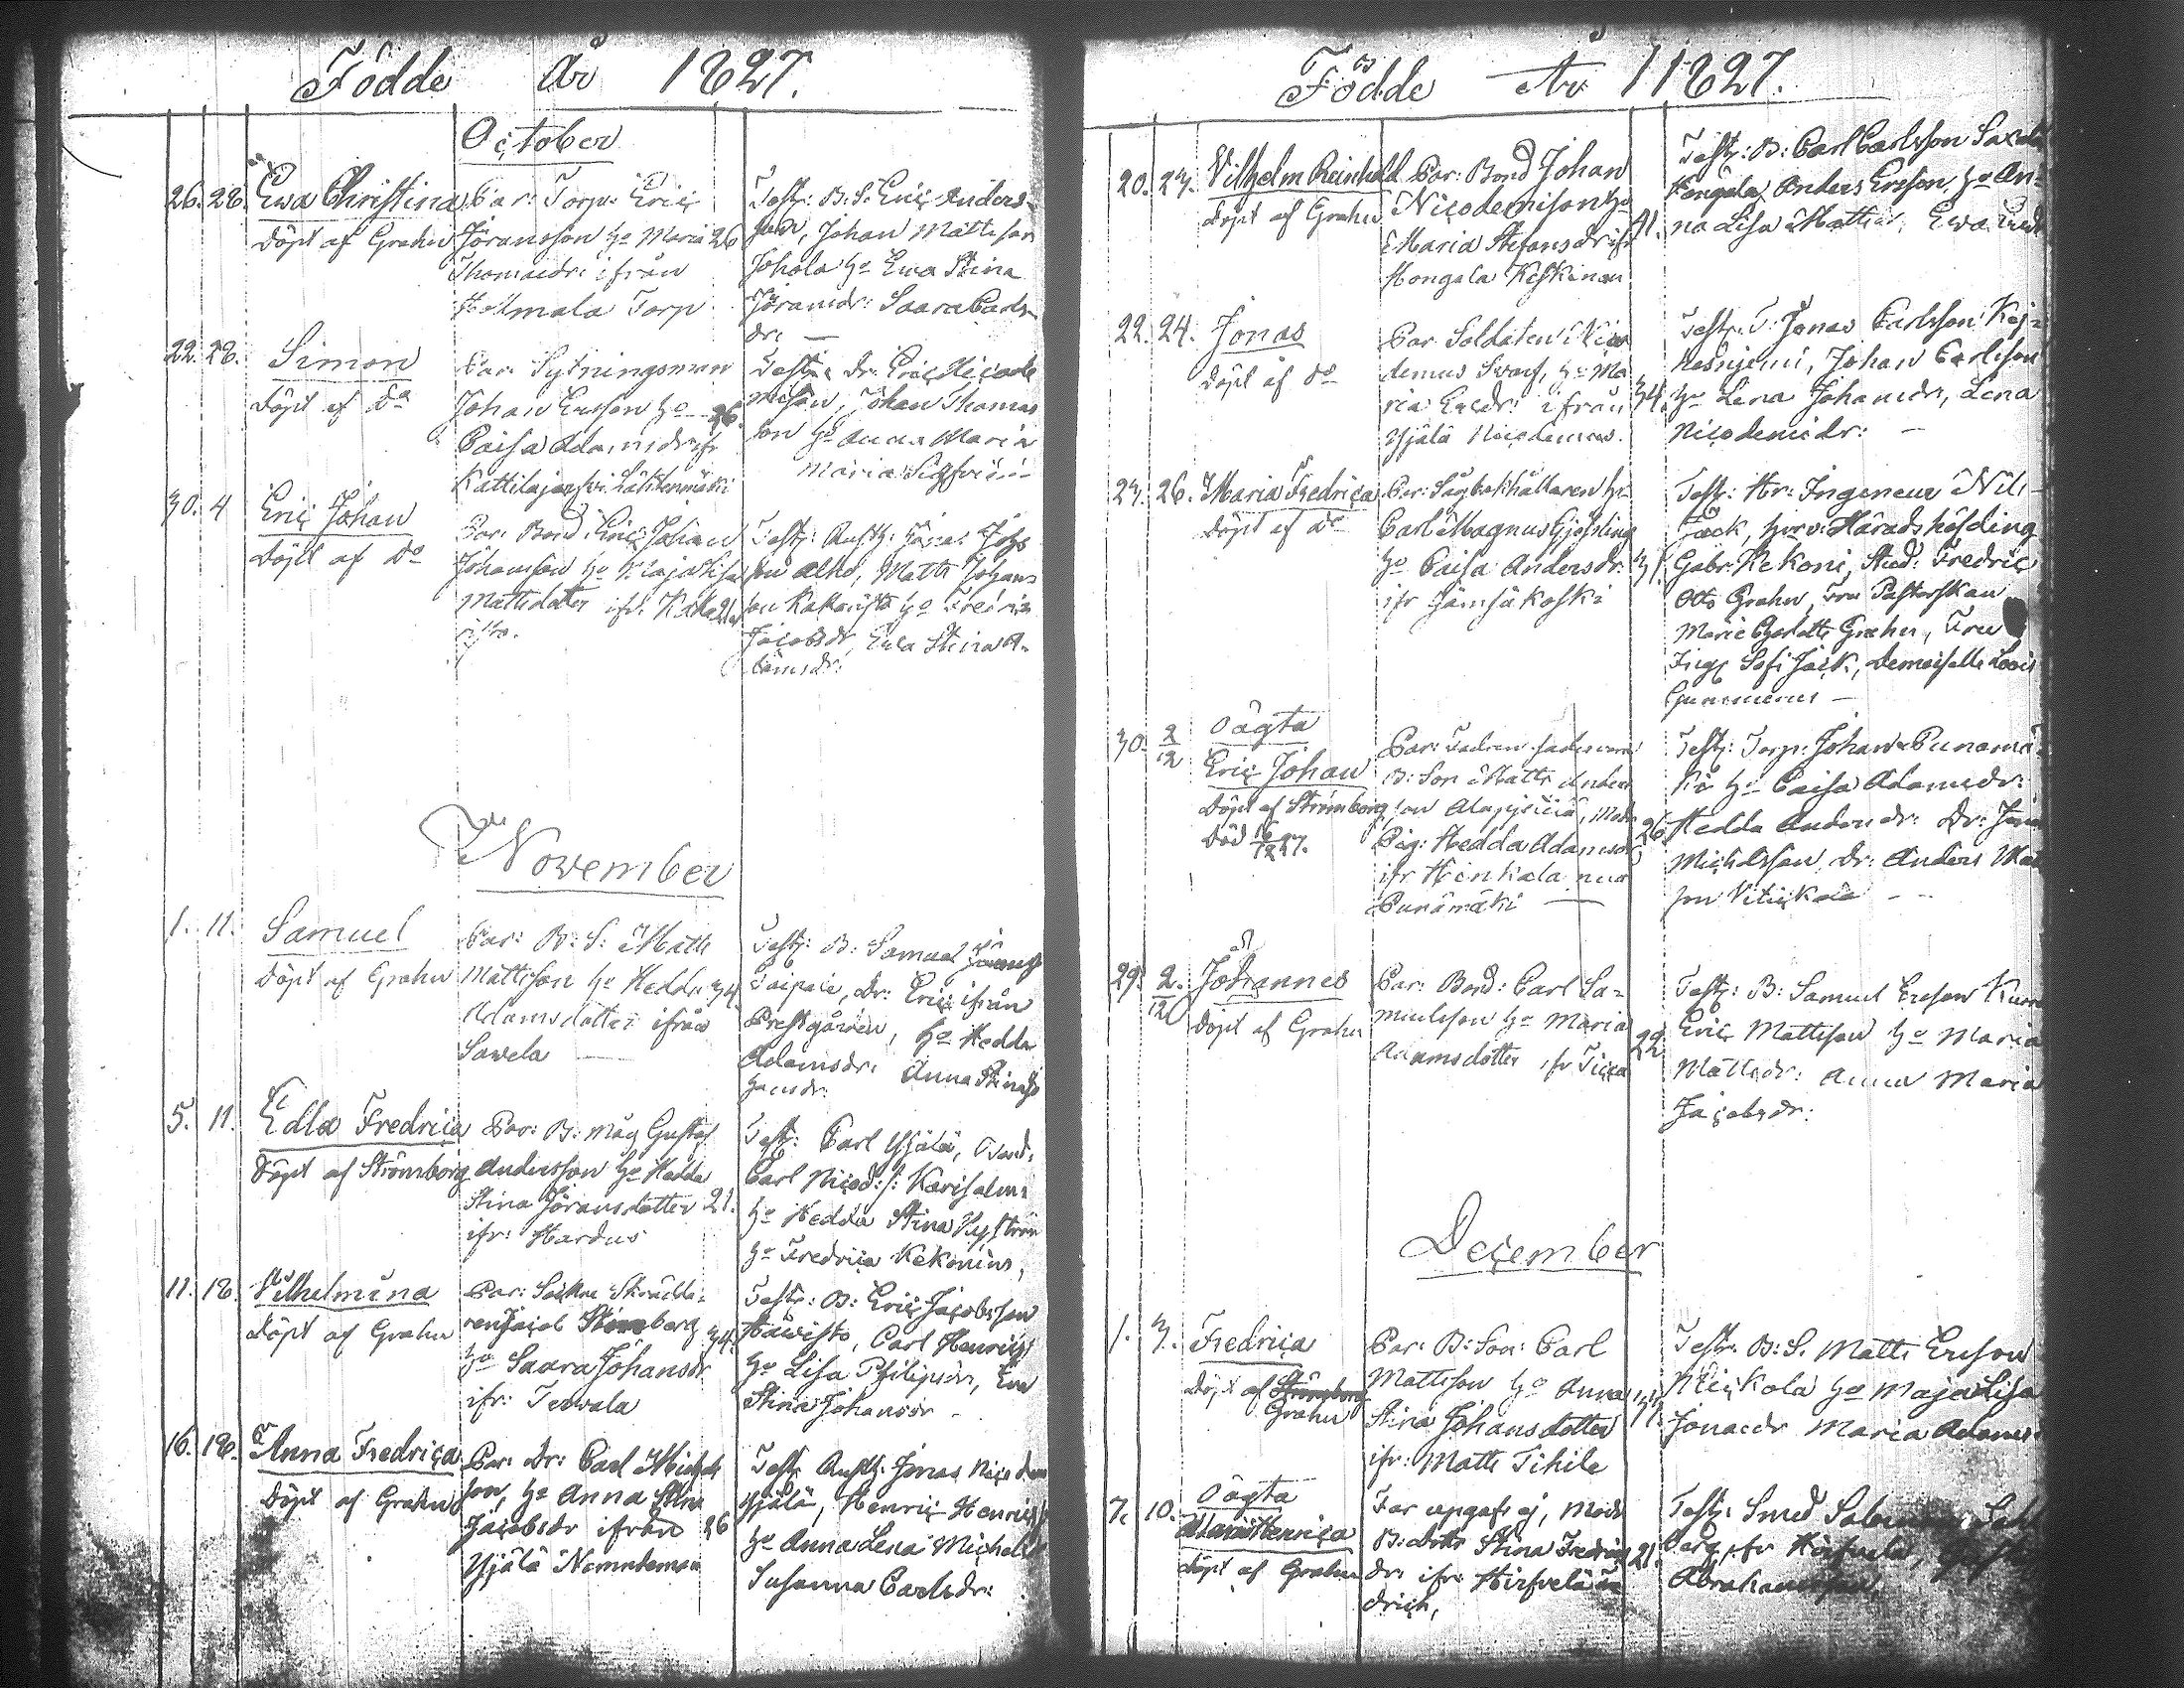 Födde År 1827.
October
26. 28. Ewa Christina
Döpt af Grahn
Par: Torp: Eric
Jöransson Ho Maria 26
Thomaedr: ifrån
Torp
Test: B. S. Eric Anders-
son, Johan Mattsson
Johola Ho Ewa Stina
Jöransdr: Saara Carls-
dr:
22. 28. Simon
Döpt af Do
Par: Sytningsman
Johan Ersson Ho 36.
Caisa Adamsdr ifr
Test: Dr: Eric Nicode
misson, Johan Thomas
son Ho Anna Maria
Maria Sigfrids
30. 4 Eric Johan
Döpt af Do
Par: Bond: Eric Johan
Johansson Ho Maja Lisa
Mattsdotter ifr.
Test: Jonas Johs
son Alho, Matts Johans
son Ho Fredrica
Jacobsdr, Ewa Stina A-
damsdr:
November
1. 11. Samuel
Döpt af Grahn
Par: B: S: Matts
Mattsson Ho Hedda 34.
Adamsdotter ifrån
Sawela
Test: B: Samuel
Taipale, Dr: Eric ifrån
Prestgården, Ho Hedda
Adamsdr: Anna Stina Jo
hansdr:
5. 11. Edla Fredrica
Döpt af Strömborg
Par: B: Måg Gustaf
Andersson Ho Hedda
Stina Jöransdotter 21.
ifr: Hardus
Test: Carl Yjälä, Bond:
Carl Nicod: s: Karisalmi
Ho Hedda Stina Nyström
Ho Fredrica Kekonius,
11. 18. Wilhelmina
Döpt af Grahn
Par: Sockne Skrädda-
ren Jacob 34.
Ho Saara Johansdr
ifr: Terwala
Test: B: Eric Jacobsson
Hawisto, Carl Henrics
Ho Lisa Philipsdr, Ewa
Stina Johansdr
16. 18. Anna Fredrica
Döpt af Grahn
Par: Dr: Carl Michels
son, Ho Anna Stina
Jacobsdr ifrån 26
Yjälä Nämndeman
Test: Jonas Nicodem
Yjälä, Henric Henrics
Ho Anna Lena Michelsd
Susanna Carlsdr:
Födde År 1827.
20. 23. Vilhelm Reinhold
Döpt af Grahn
Par: Bond Johan
Nicodemisson Ho
Maria Stefansdr ifr 41.
Hongola Keskinen
Test: B: Carl Carlsson
Hongola, Anders Ersson, Ho An-
na Lisa Mattsdr, Ewa
22. 24. Jonas
Döpt af Do
Par: Soldaten Nico
demus Swarf, Ho Ma
ria Ericsdr: ifrån 34.
Yjälä Nicodemus.
Test: T: Jonas Carlsson Kej-
hesnjemi, Johan Carlsson
Ho Lena Johansdr, Lena
Nicodemidr:
23. 26. Maria Fredrica
Döpt af Do
Par: Sågbokhållaren Hr
Carl Magnus Gjösling
Ho Caisa Andersdr: 31.
ifr Jämsäkoski
Test: Hr: Ingenieur Nils
Jack, Hrr v: Häradshöfding
Gabr: Kekoni, Stud: Fredric
Otto Grahn, Fru Pastorskan
Marie Charlotte Grahn, Fru
Sofi Jack, Demoiselle Lovis
Gummerus
30. 2/12 Oägta
Eric Johan
Döpt af Strömborg
Död
Par: Fadren
B: Son Matts Anders
son, Modr
Pig: Hedda Adamsdr 26.
ifr Hinkala
Punamäki
Test: Torp: Johan Punamä-
ki Ho Caisa Adamsdr:
Hedda Andersdr: Dr: Johan
Michelsson, Dr: Anders Matts
son Vitickala
29. 2/12 Johannes
Döpt af Grahn
Par: Bond: Carl Sa-
muelsson Ho Maria 22
Adamsdotter ifr Ticca
Test: B: Samuel Ersson
Eric Mattsson Ho Maria
Mattsdr: Anna Maria
Jacobsdr:
December
1. 3. Fredrica
Döpt af Strömborg
Grahn
Par: B: Son: Carl
Mattsson Ho Anna
Stina Johansdotter
ifr: Matts Tihile
Test: B: S. Matts Ersson
Ho Maja Lisa
Jonaedr Maria Adams
7. 10. Oägta
Maria Henrica
Döpt af Grahn
Far upgafs ej, Modr
B: dottr Stina Fredrics 21.
dr: ifr: Hirfvelä
Test: Smed
ifr Hirfvelä,
Abrahamsson